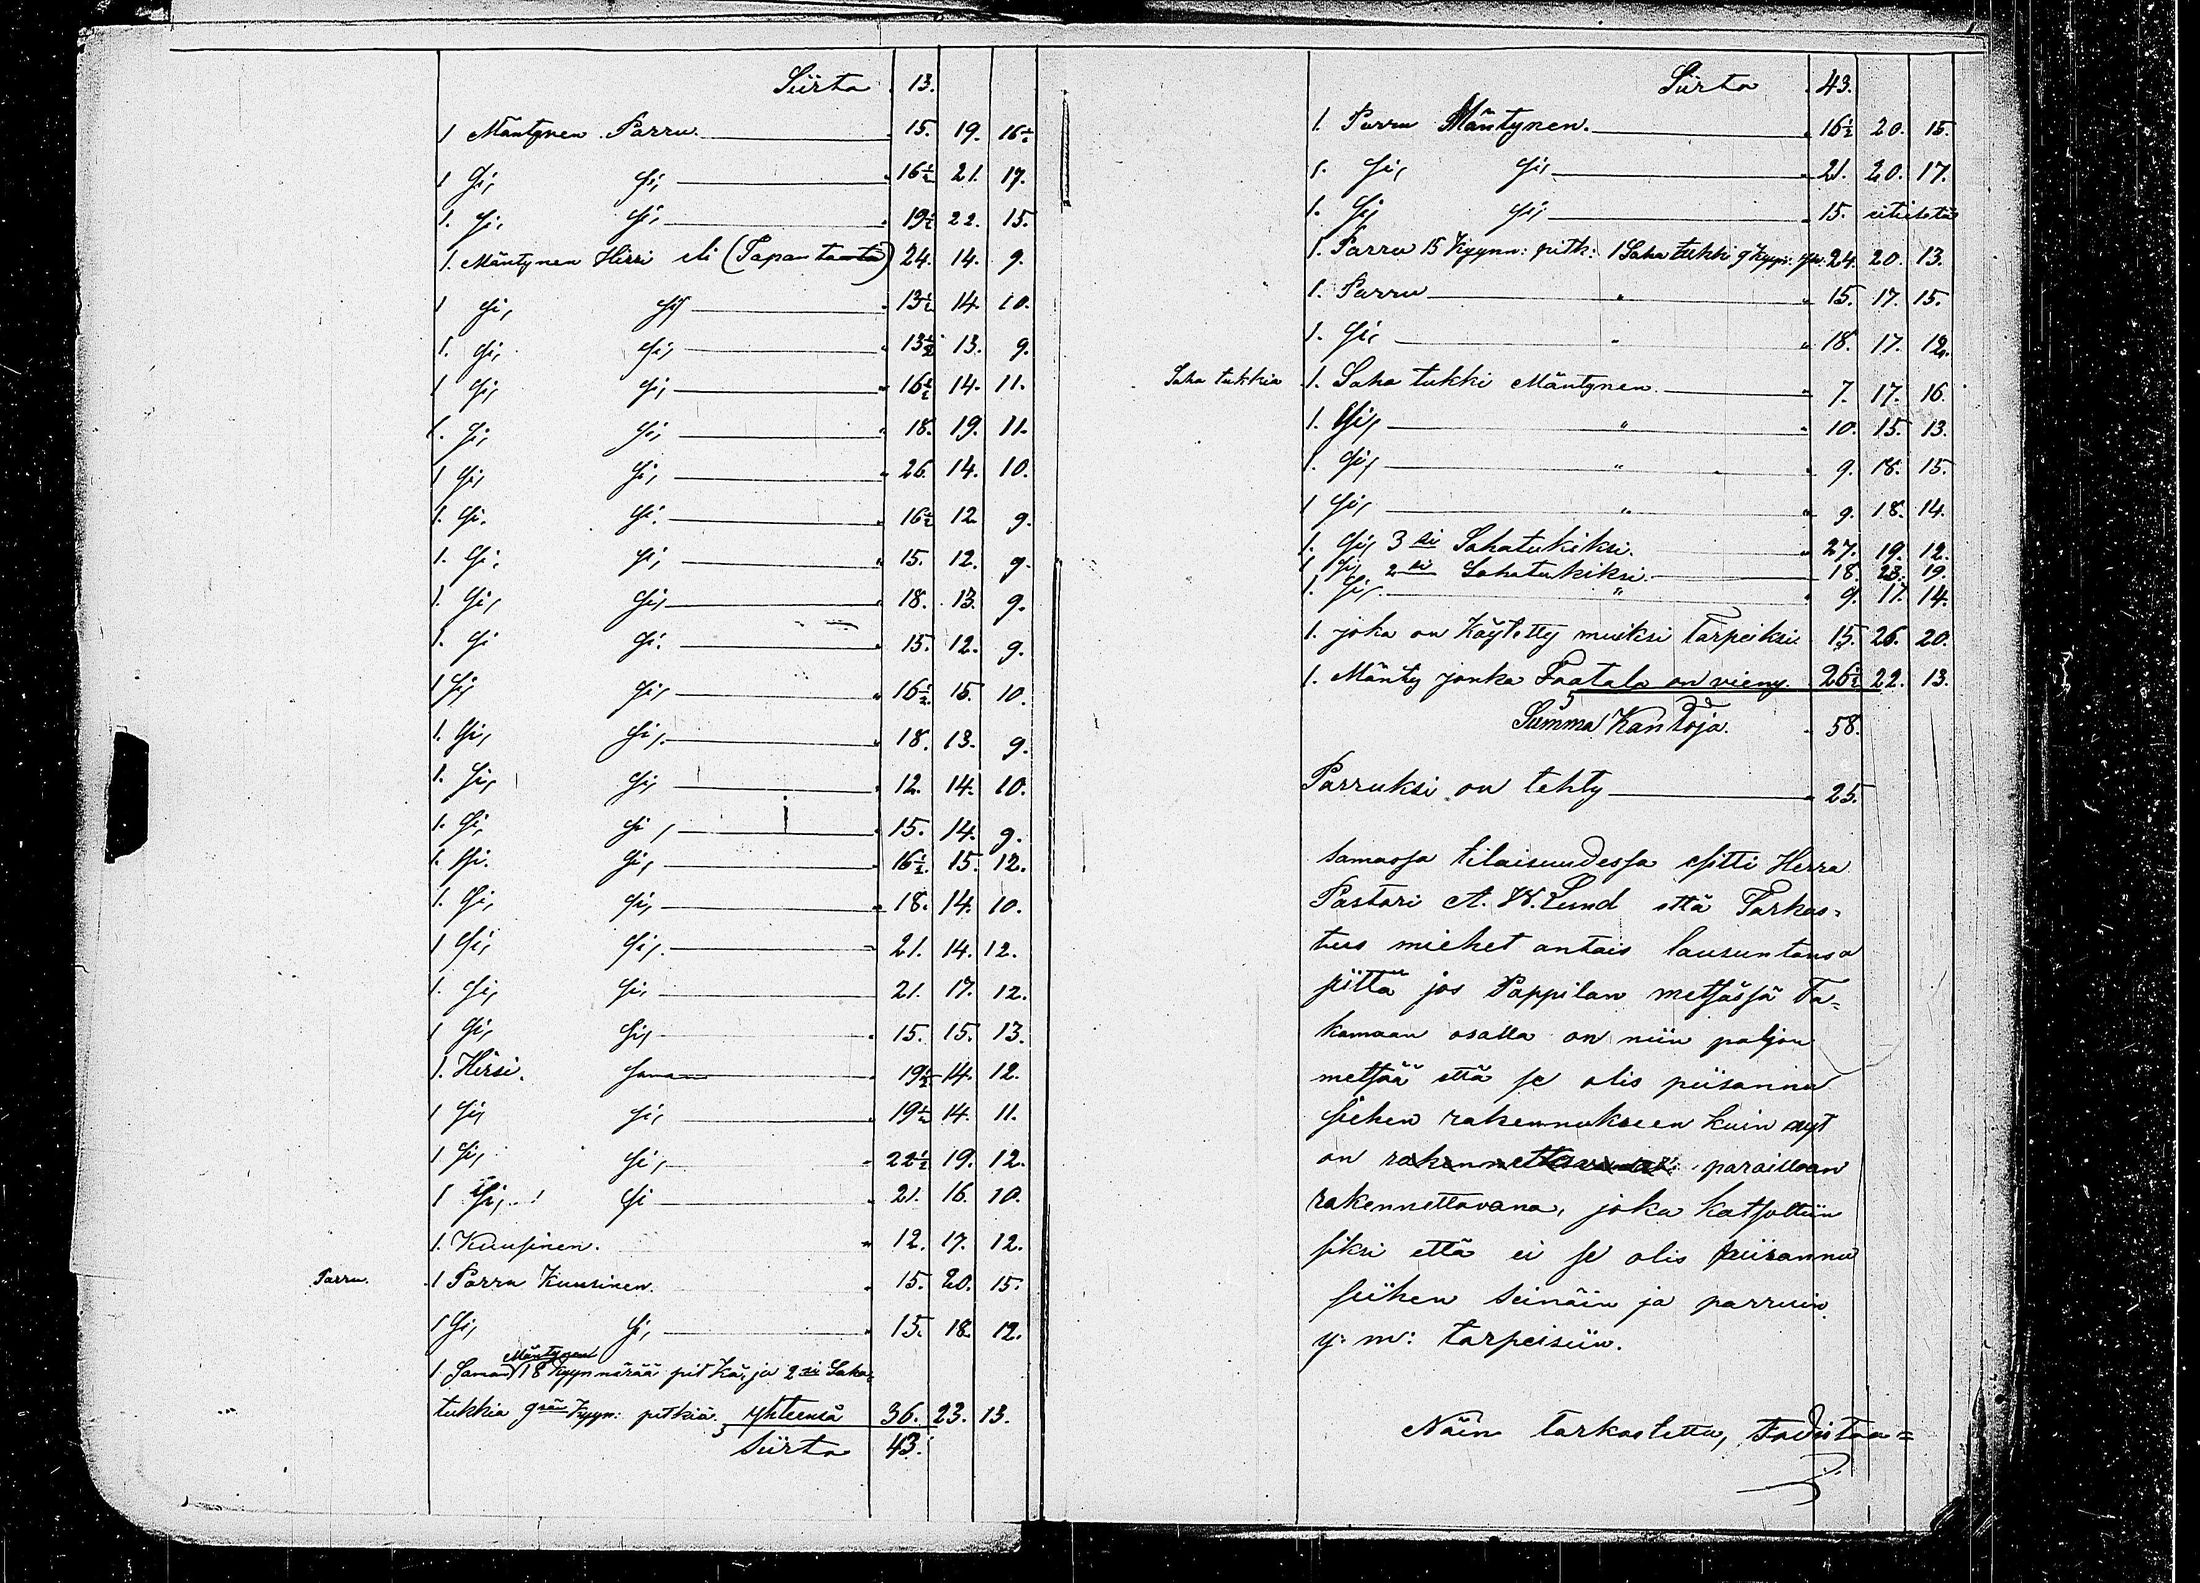 Siirto 13.
1 Mäntynen Parru 15. 19. 16½
1 Si, Si, 16½ 21. 17.
1. Si, Si, 19½ 22. 15.
1. Mäntynen Hirsi eli (Tapan tanta) 24. 14. 9.
1 Si, Si, 13½ 14. 10.
1. Si, Si, 13½ 13. 9.
1 Si, Si, 16½ 14. 11.
1. Si, Si, 18. 19. 11.
1 Si, Si, 26. 14. 10.
1. Si. Si. 16½ 12 9.
1. Si. Si, 15. 12. 9.
1. Si, Si, 18. 13. 9.
1. Si Si. 15. 12. 9.
1 Si, Si, 16½. 15. 10.
1. Si, Si, 18. 13. 9.
1. Si, Si, 12. 14. 10.
1. Si, Si, 15. 14. 9.
1. Si. Si, 16½. 15. 12.
1. Si, Si, 18. 14. 10.
1 Si, Si, 21. 14. 12.
1. Si, Si, 21. 17. 12.
1 Si, Si, 15. 15. 13.
1. Hirsi. Saman 19½ 14. 12.
1 Si, Si, 19½ 14. 11.
1 Si, Si, 22½ 19. 12.
1 Si, Si 21. 16. 10.
1. Kuusinen. 12. 17. 12.
Parru. 1 Parru Kuusinen. 15. 20. 15.
1 Si, Si, 15. 18. 12.
Mäntynen
1 Saman 18 Kyynnärää pit Kä, ja 2si Saha-
tukkia 9sän Kyyn: pitkiä. yhteensä 36. 23. 13.
Siirto 43.
Siirto 43.
1. Parru Mäntynen. 16½ 20. 15.
1. Si, Si, 21. 20. 17.
1. Si, Si, 15.
1. Parru 15 Kyynn: pitk: 1 Saha tukki 9 Kyyn: 24. 20. 13.
1. Parru " 15. 17. 15.
1. Si, " 18. 17. 12.
Saha tukkia 1. Saha tukki Mäntynen 7. 17. 16.
1. Si, " 10. 15. 13.
1. Si, " 9. 18. 15.
1 Si, " 9. 18. 14.
1. Si, 3si Sahatukiksi. 27. 19. 12.
1 Si, 2si Sahatukiksi. 18. 23. 19.
1. Si, " 9. 17. 14.
1. joka on Käytetty muiksi Tarpeiksi 15. 26. 20.
1. Mänty jonka Faatala on vieny. 26½ 22. 13.
Summa Kantoja. 58.
Parruksi on tehty 25.
samassa tilaisuudessa esitti Herra
Pastori A. W. Lund että Tarkas-
tus miehet antais lausuntansa
siittä jos Pappilan metsässä Ta-
kamaan osalla on niin paljon
metsää että se olis piisannu
siihen rakennukseen kuin nyt
on rakennettavana paraillaan
rakennettavana, joka katsottiin
siksi että ei se olis piisannu
siihen seinäin ja parruin
y. m: tarpeisiin.
Näin tarkastettu, todistaa=